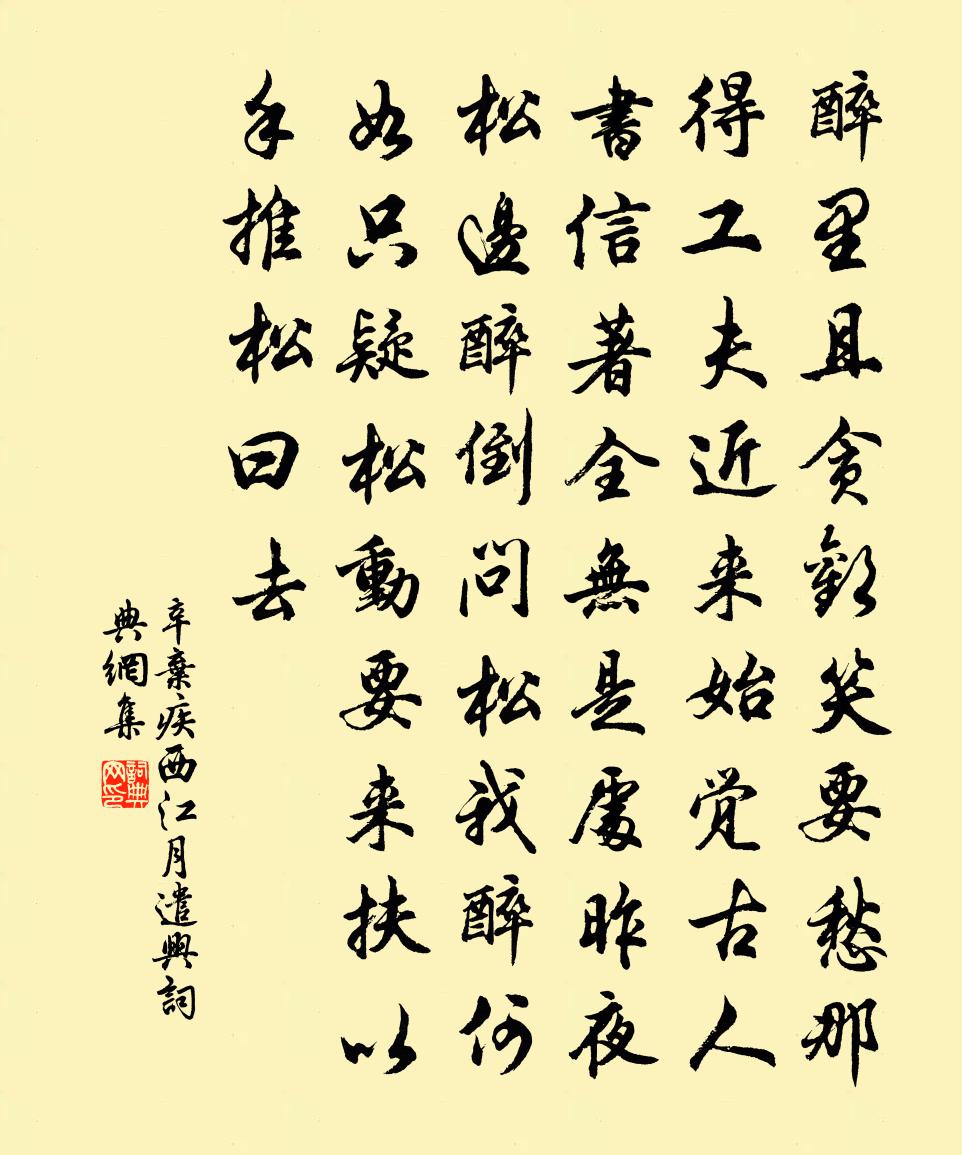 醉里且貪歡笑要愁那
得工夫近来始觉古人
書信著全無是處昨夜
松邊醉倒問松我醉何
如只疑松動要来扶以
手推松曰去
辛棄疾西江月遣興詞
典網集
詞典
网印